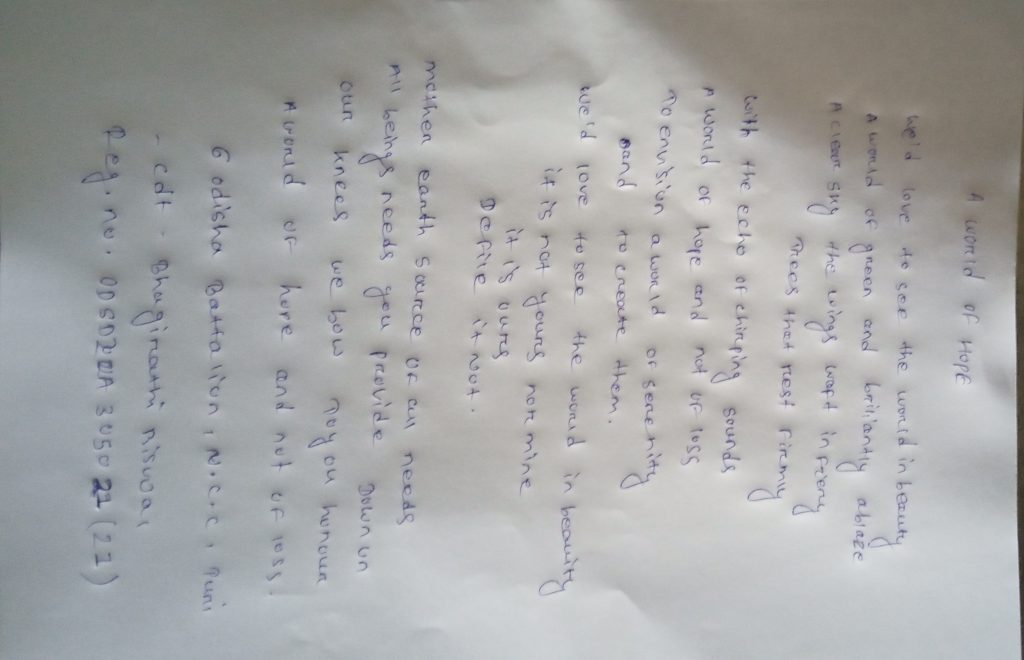 A world of Hope
we'd love to see the world in beauty
A world of green and briliantly ablaze
A clear sky the wings waft in fiery
Trees that rest firmly
with the echo of chirping sounds
A world of hope and not of loss
To envision a world of serenity
and to create them.
we'd love to see the world in beauity
it is not yours nor mine
it is ours
Defile it not.
mother earth source of all needs
All beings needs you provide Down on
our knees we bow To you honour
A world of hope and not of loss.
6 odisha Battalion, N.C.C, Puri
- cdt - Bhagirathi niswal
Reg. no. ODSD20DA 305021 (21)